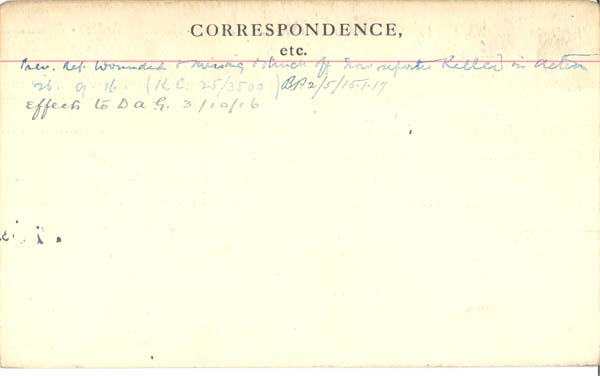 CORRESPONDENCE,
etc.
Prev. Ref. Wounded & Missing & struck off Now reported Killed in action
26. 9. 16. (K.C. 25/3500) B.P.2/5/15.1.17
Effects to D a G. 3/10/16